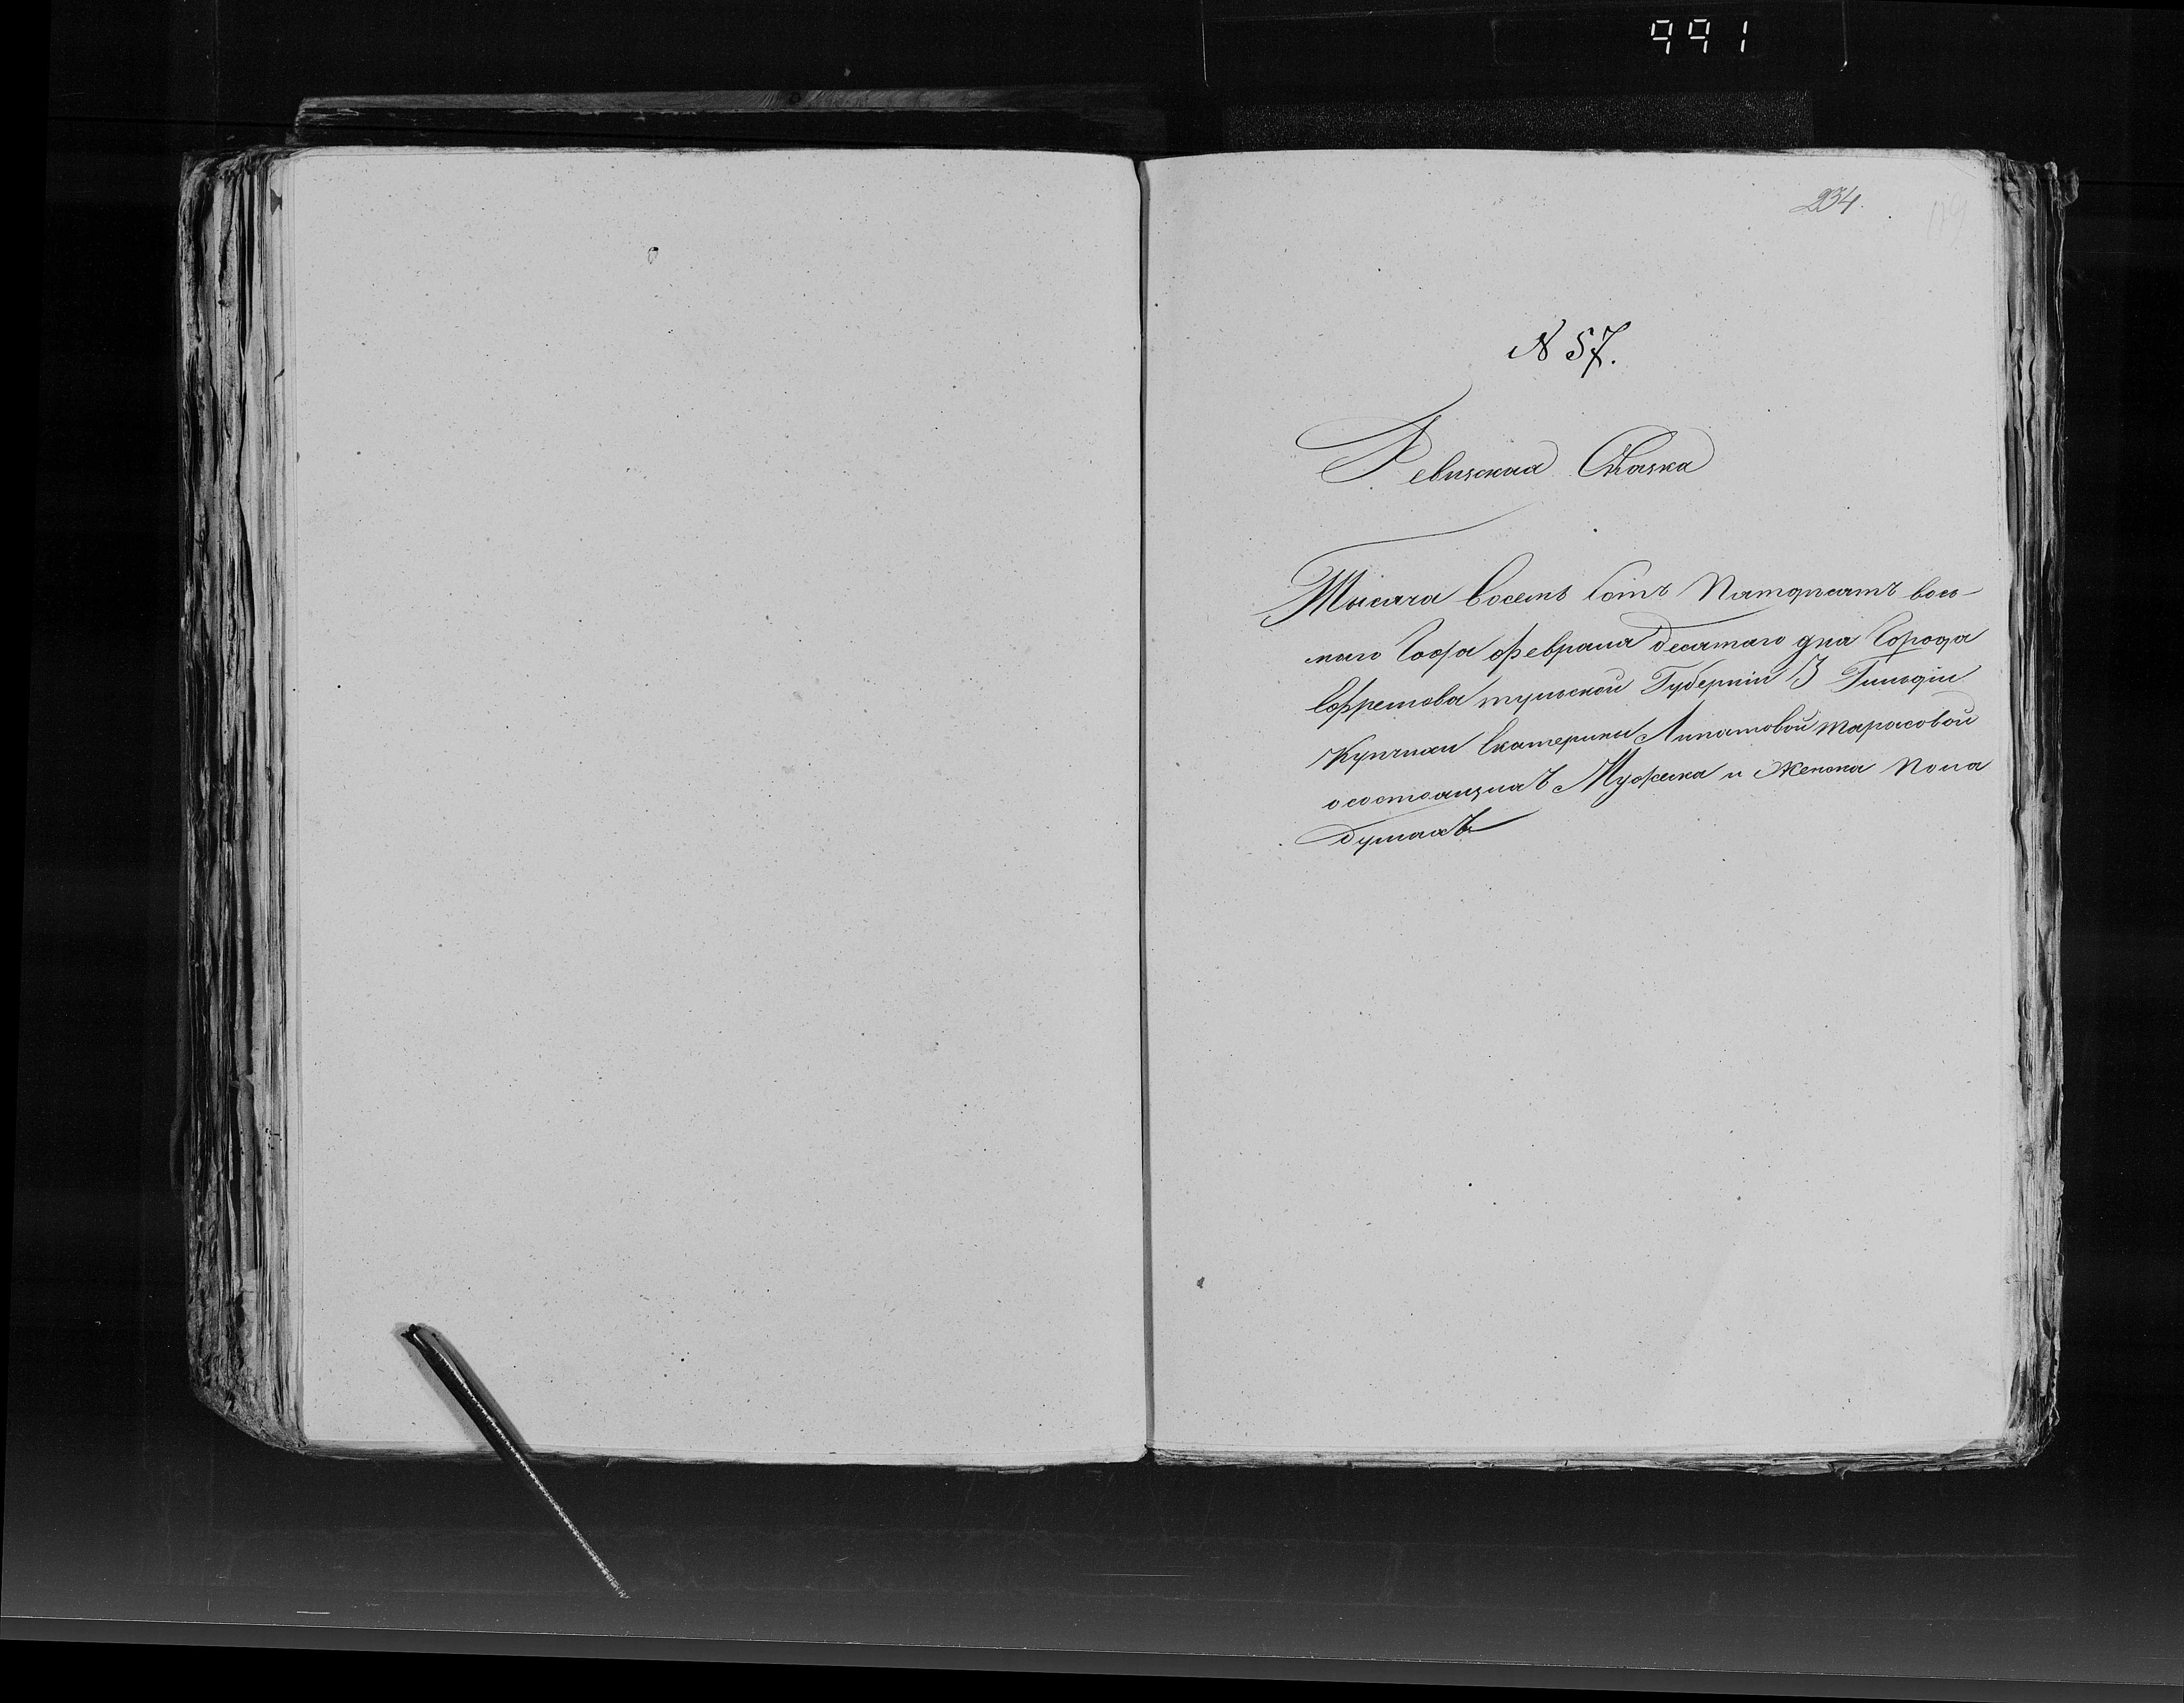 991
234.
119
N 57.
Ревизская Сказка
Тысяча восемь сотъ Пятдесятъ вось-
маго Года февраля десятаго дня Города
Ефремова тульской Губерніи 3 Гильдіи
Купчихи Екатерины Липатовой тарасовой
осостоящихъ Мужеска и Женска Пола
душахъ